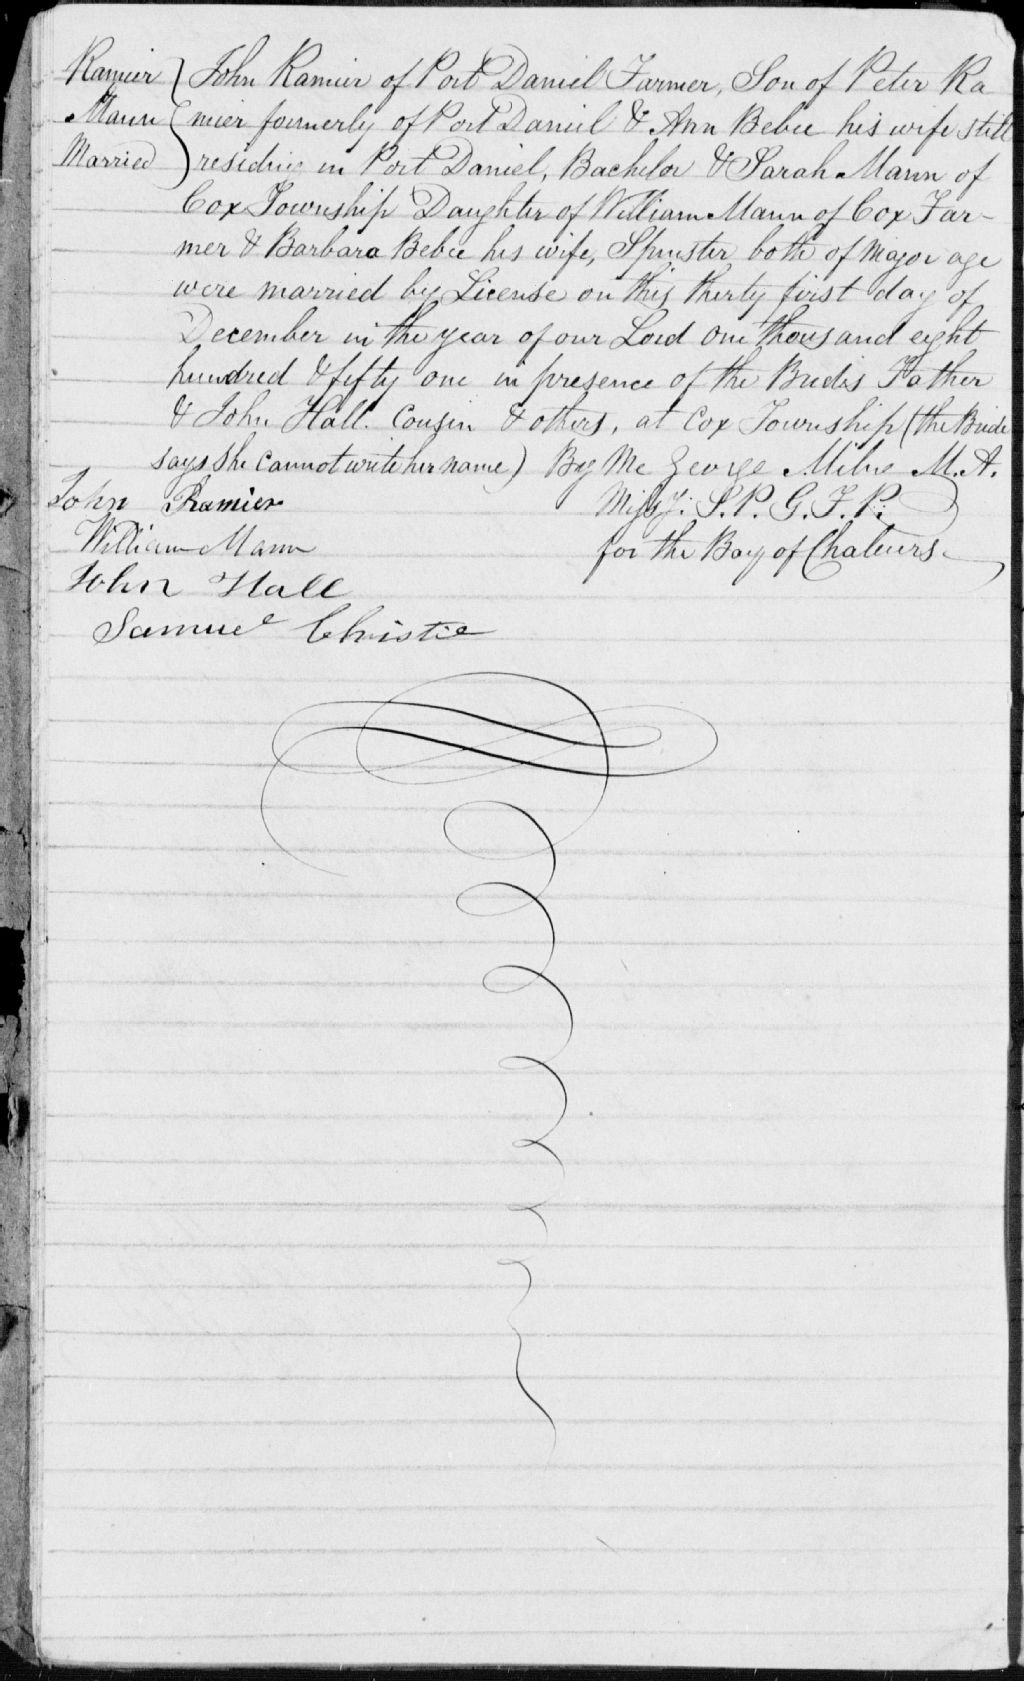 Ramier } John Ramier of Port Daniel Farmer, Son of Peter Ra
Mann { mier formerly of Port Daniel & Ann Bebee his wife still
Married } residing in Port Daniel, Bachelor & Sarah Mann of
Cox Township Daughter of William Mann of Cox Far-
mer & Barbara Bebee his wife, Spinster both of major age
were married by License on this thirty first day of
December in the year of our Lord one thousand eight
hundred & fifty one in presence of the Brides Father
& John Hall. Cousin & others, at Cox Township (the Bride
says she cannot write her name) By Me George Milne M.A.
John Ramier Missy: S. P. G. F. P.
William Mann for the Bay of Chaleurs
John Hall
Samuel Christie